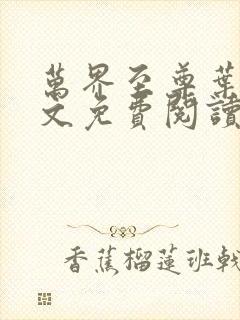 萬界至尊葉
文免費閱讀
香蕉榴蓮班戟